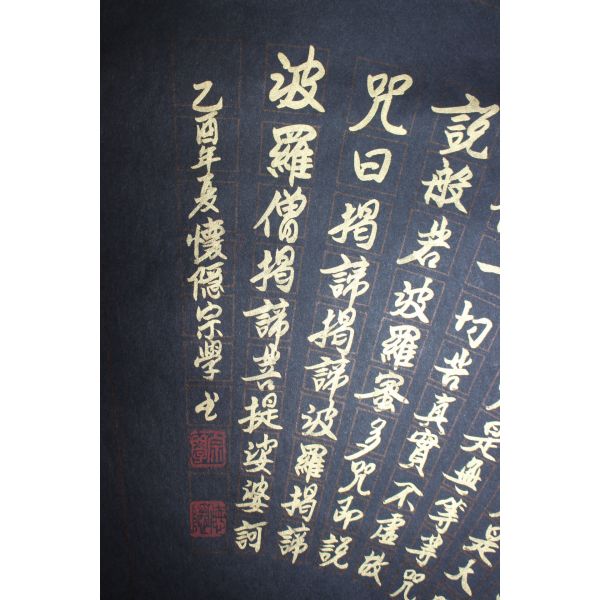 是大
是無等等咒
一切苦真實不虛故
說般若波羅蜜多咒即說
咒曰揭諦揭諦波羅揭諦
波羅僧揭諦菩提娑婆訶
乙酉年夏懷隱宗學書
宗學